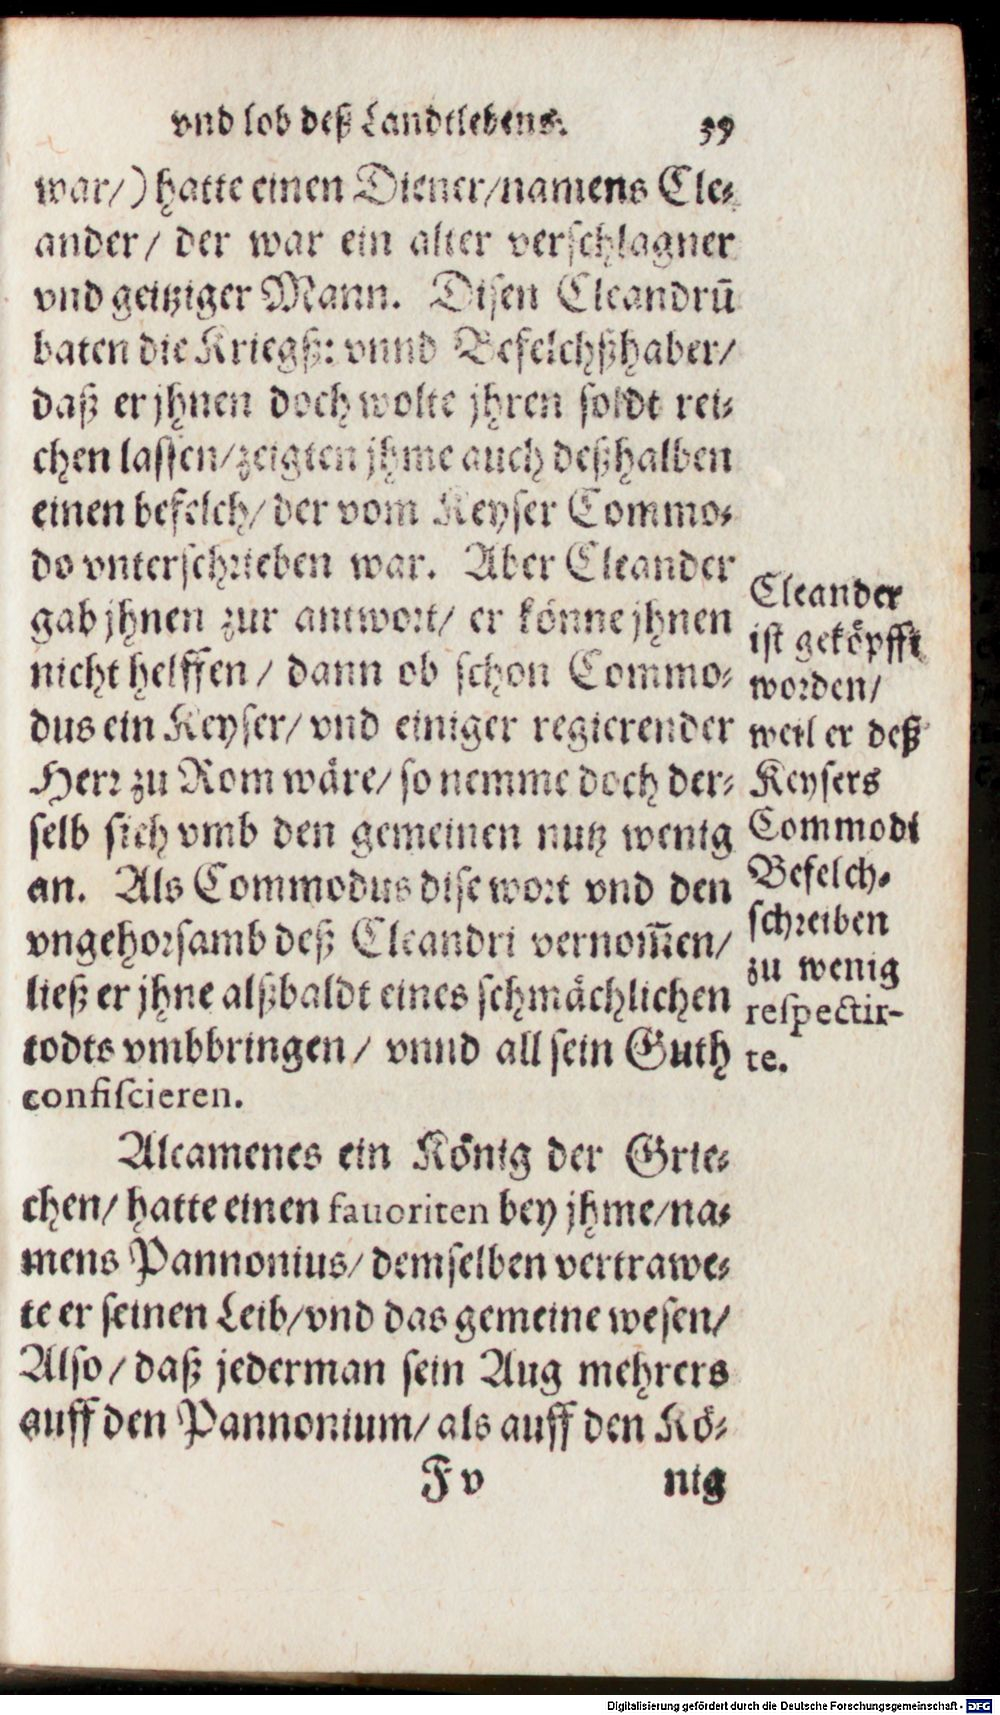 vnd lob deß Landtlebens. 59
war/) hatte einen Diener/namens Cle-
ander/ der war ein alter verschlagner
vnd geitziger Mann. Disen Cleandrū
baten die Kriegß: vnnd Befelchßhaber/
daß er jhnen doch wolte jhren soldt rei-
chen lassen/zeigten jhme auch deßhalben
einen befelch/ der vom Keyser Commo-
do vnterschrieben war. Aber Cleander
gab jhnen zur antwort/ er könne jhnen
nicht helffen/ dann ob schon Commo-
dus ein Keyser/ vnd einiger regierender
Herr zu Rom wäre/ so nemme doch der-
selb sich vmb den gemeinen nutz wenig
an. Als Commodus dise wort vnd den
vngehorsamb deß Cleandri vernom̄en/
ließ er jhne alßbaldt eines schmächlichen
todts vmbbringen/ vnnd all sein Guth
confiscieren.
Cleander
ist geköpfft
worden/
weil er deß
Keysers
Commodi
Befelch-
schreiben
zu wenig
respectir-
te.
Alcamenes ein König der Grie-
chen/ hatte einen fauoriten bey jhme/na-
mens Pannonius/ demselben vertrawe-
te er seinen Leib/vnd das gemeine wesen/
Also/ daß jederman sein Aug mehrers
auff den Pannonium/ als auff den Kö-
F v nig
Digitalisierung gefördert durch die Deutsche Forschungsgemeinschaft - DFG